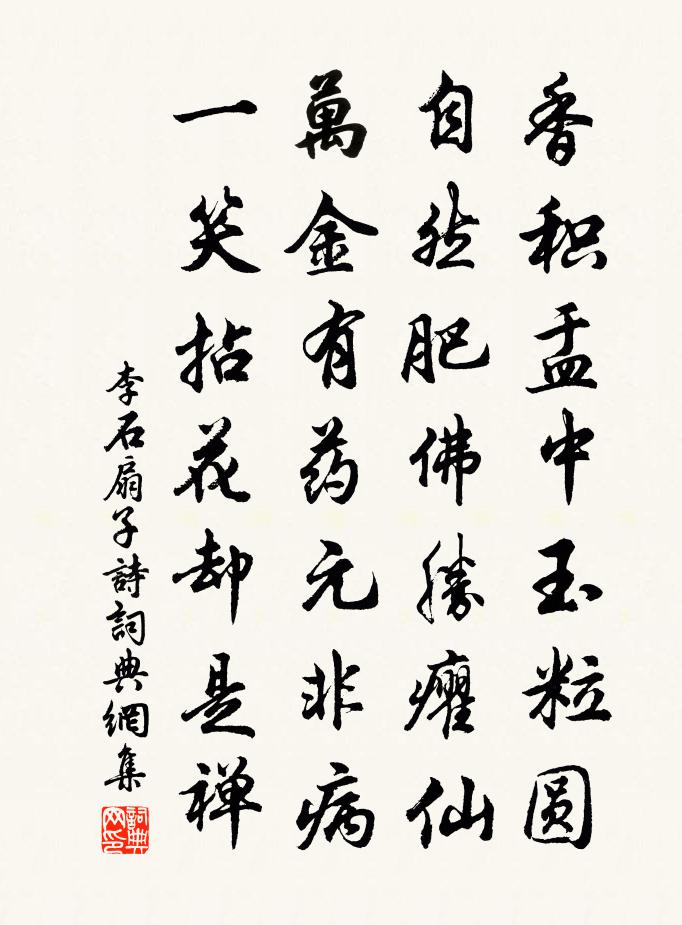 香积盂中玉粒圆
自然肥佛勝癯仙
萬金有药元非病
一笑拈花却是禅
李石扇子詩詞典網集
詞典网印